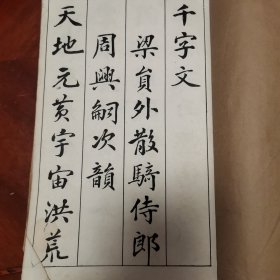 千字文
梁貟外散騎侍郎
周興嗣次韻
天地元黄宇宙洪荒